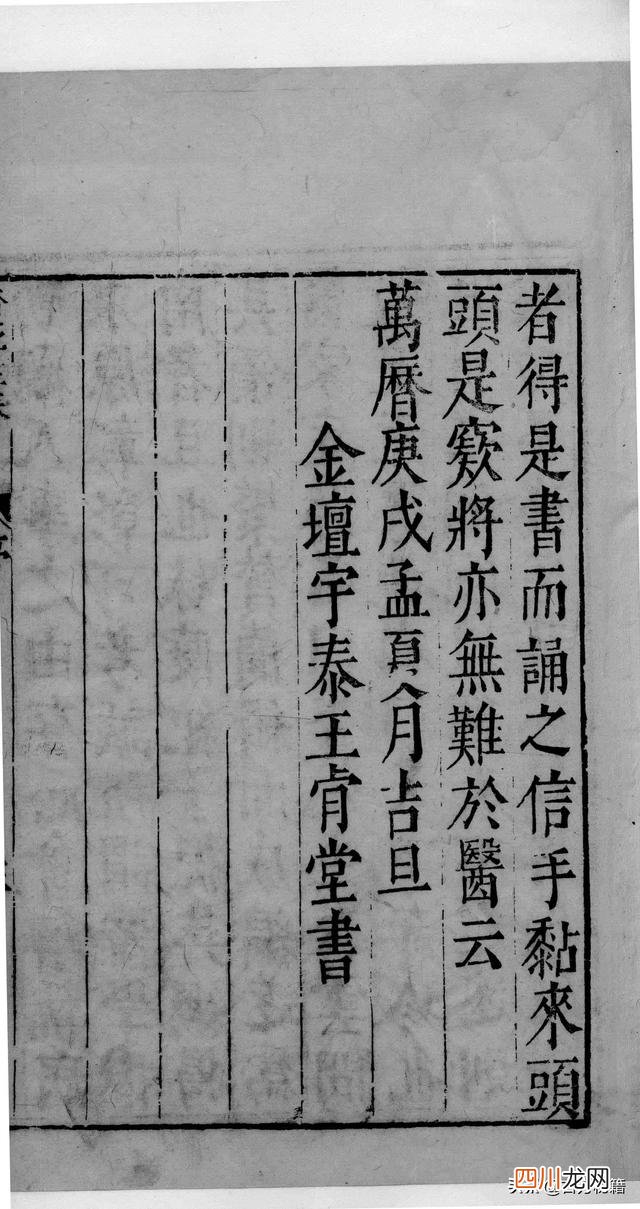 者得是書而誦之信手黏來頭
頭是窾將亦無難於醫云
萬曆庚戌孟夏月吉旦
金壇宇泰王肎堂書
四川龙网